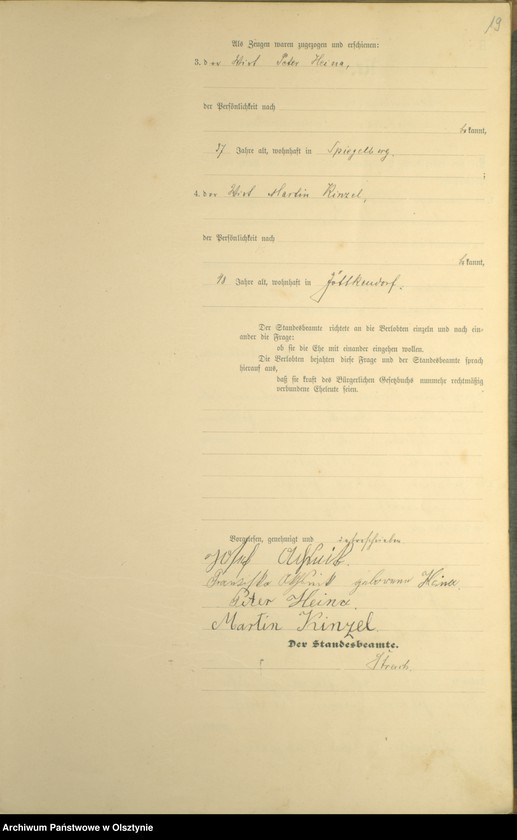 19
Als Zeugen waren zugezogen und erschienen:
3. der Wirt Peter Heina,
der Persönlichkeit nach
bekannt,
37 Jahre alt, wohnhaft in Spiegelberg.
;
4. der Wirt Martin Kinzel,
der Persönlichkeit nach
bekannt,
Jahre alt, wohnhaft in Jöttkendorf.
Der Standesbeamte richtete an die Verlobten einzeln und nach ein-
ander die Frage:
ob sie die Ehe mit einander eingehen wollen.
Die Verlobten bejahten diese Frage und der Standesbeamte sprach
hierauf aus,
daß sie kraft des Bürgerlichen Gesetzbuchs nunmehr rechtmäßig
verbundene Eheleute seien.
Vorgelesen, genehmigt und unterschrieben
Josef
Franziska geborene Heina.
Peter Heina.
Martin Kinzel
Der Standesbeamte.
Archiwum Państwowe w Olsztynie